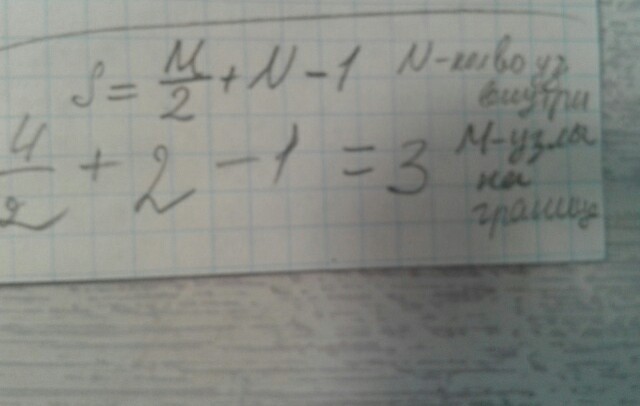 S = M/2 + N - 1
N - кол-во уз.
внутри
4/2 + 2 - 1 = 3
M - узлы
на
границе